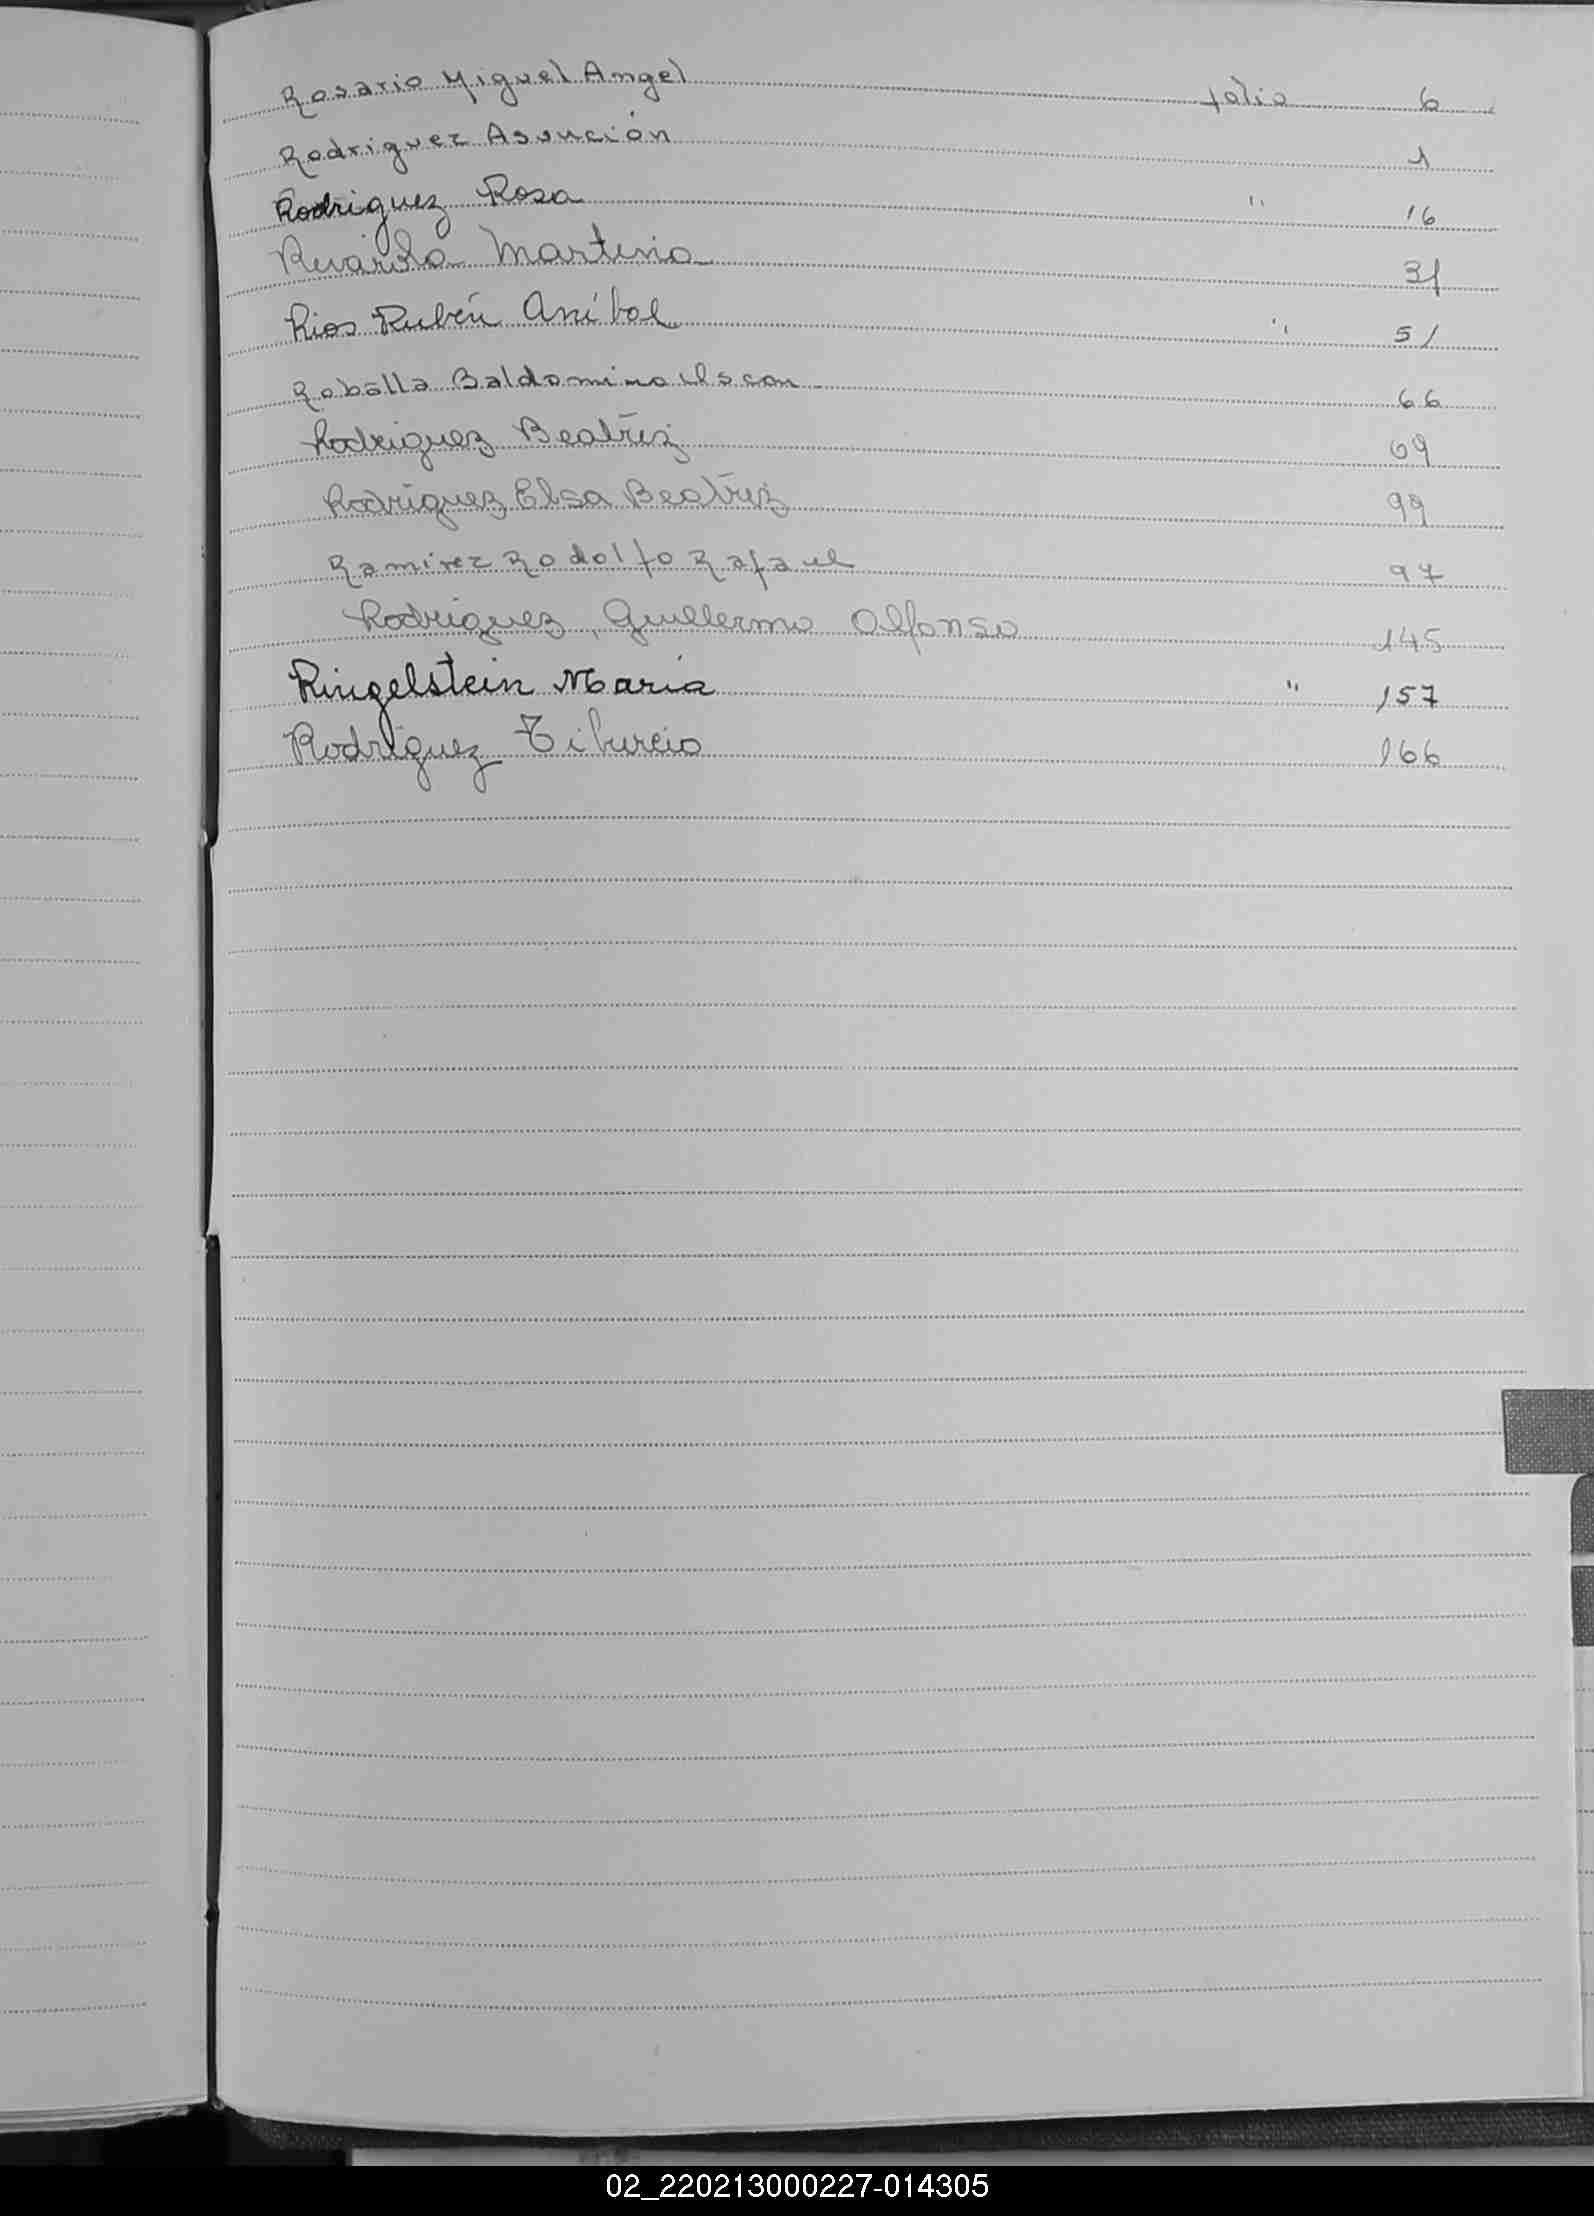 Rosario Miguel Angel folio 6
Rodriguez Asunción 1
Rodriguez Rosa " 16
Rivarola Martina 31
Rios Rubén Aníbal " 51
Robella Baldomino 66
Rodriguez Beatriz 69
Rodriguez Elsa Beatriz 99
Ramirez Rodolfo Rafael 97
Rodriguez, Guillermo Alfonso 145
Ringelstein Maria " 157
Rodriguez Tiburcio 166
02_220213000227-014305